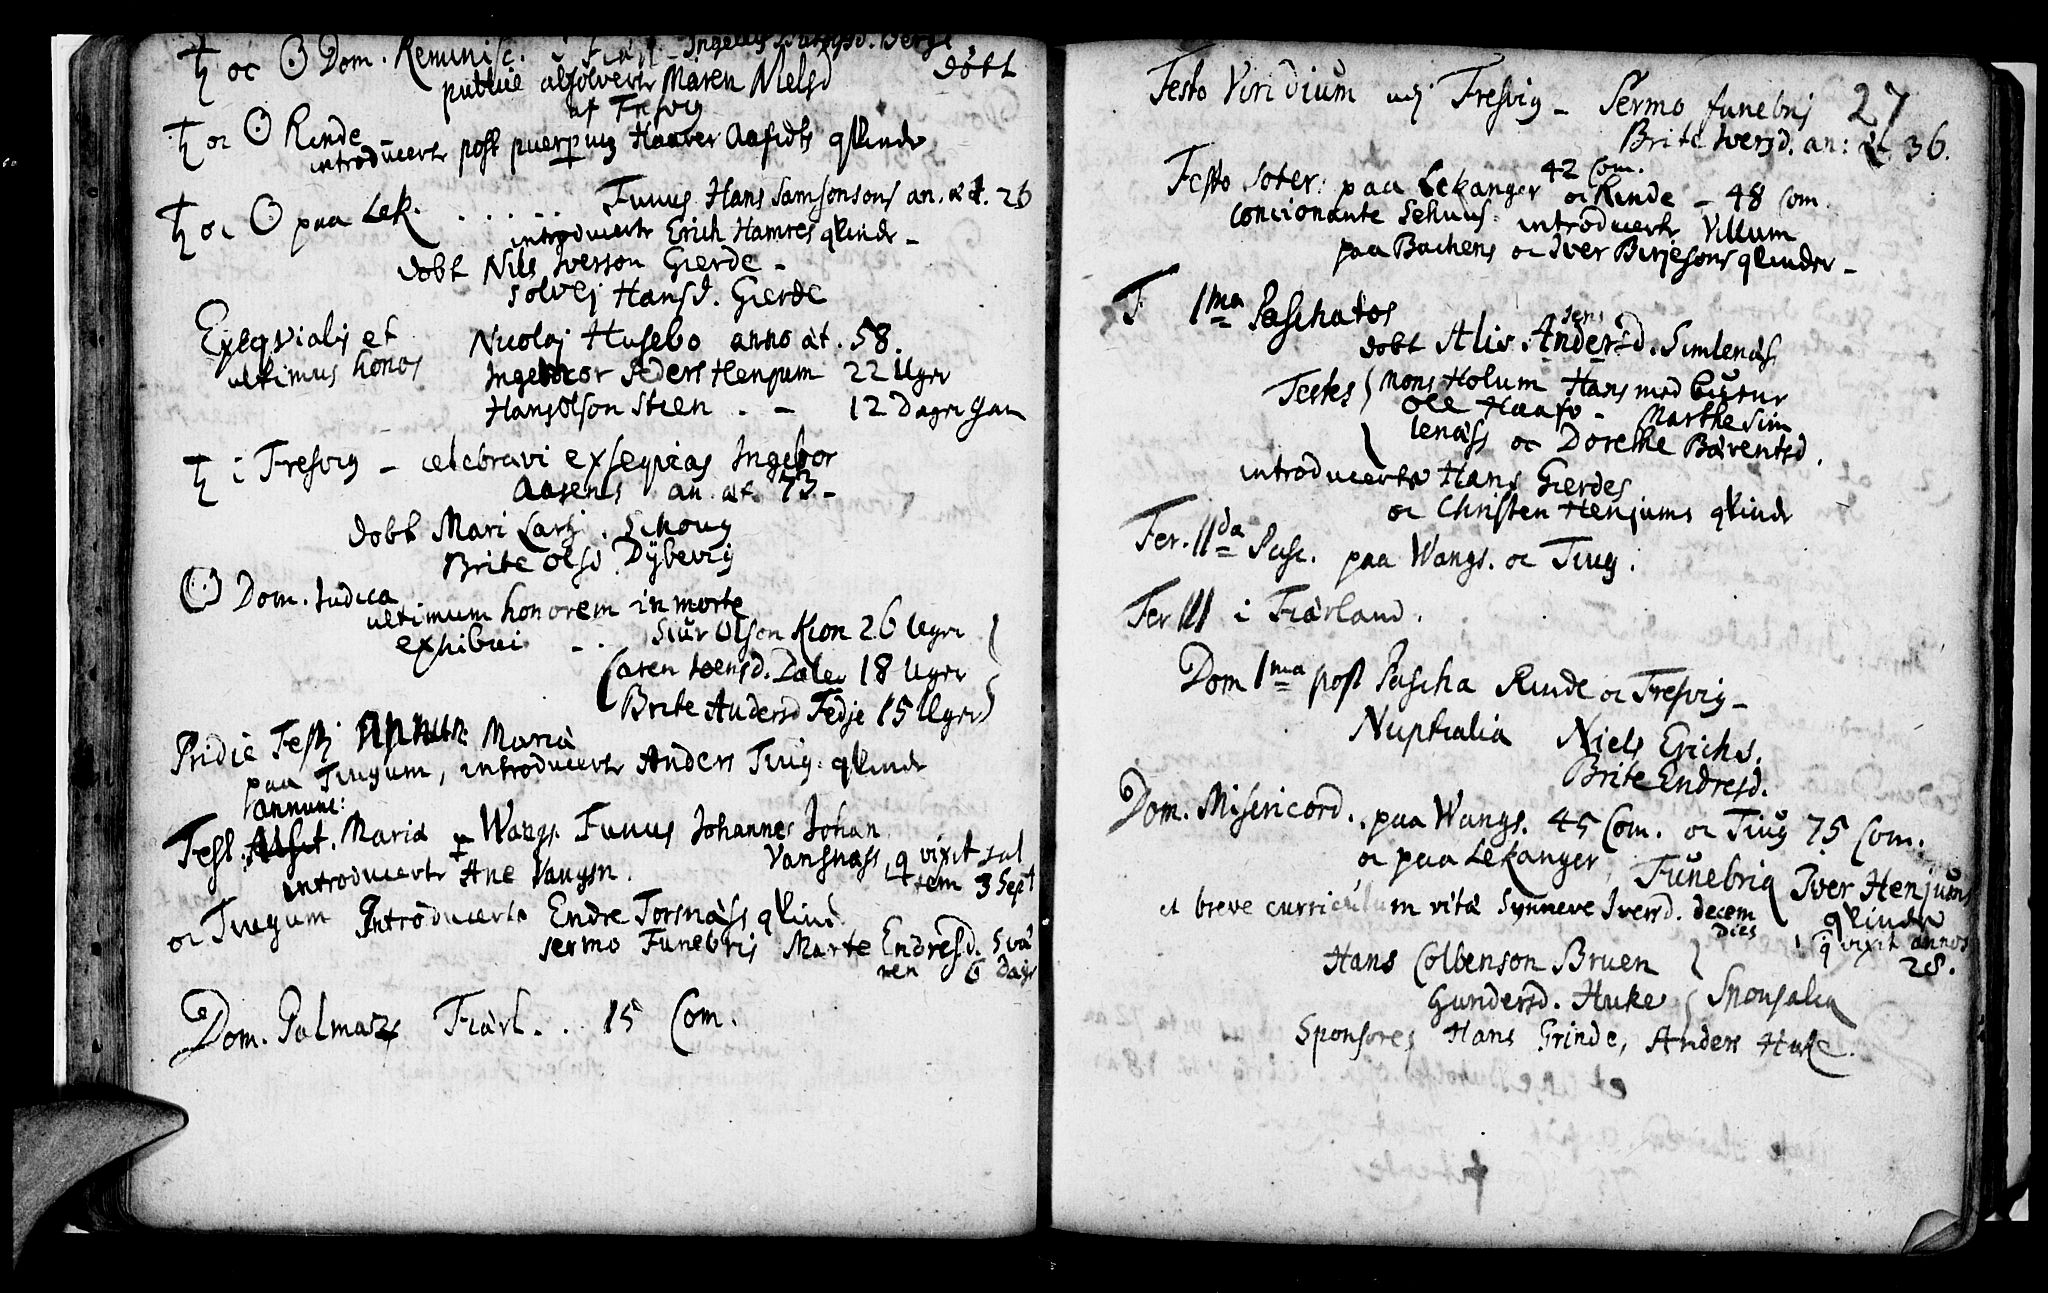 ♄ oc ☉ Dom. Reminisc.
döbt
publice absolvert Maren Nielsd
af Fresvig
♄ oc ☉ Rinde
introducerte post puerp Haaver Aafedts qvinde
♄ oc ☉ paa Lek. . . . . . . Funus Hans Samsonsons an. æt. 26
introducerte Erich Hamres qvinde –
döbt Nils Iverson Gierde –
Solvej Hansd. Gierde
Exeqvialis et Nicolaj Husebo anno æt. 58.
ultimus honos Ingebor Peders Henjum 22 Uger
Hans Olson Stien . – 12 Dager gam
♄ i Fresvig – celebravi exseqvias Ingebor
Aasens an. æt. 73 –
döbt Mari Larsd. Skoug
Brite Olsd Dybevig
☉ Dom. Judica
ultimum honorem in morte
exhibui . . Siur Olson Kion 26 Uger
Caren Iversd. Dale 18 Uger
Brite Andersd Fedje 15 Uger
Pridie Festi Maria
paa Tiugum, introducerte Anders Tiug. qvinde
annunc:
Fest. Maria Wangs. Funus Johannes Johan
Vansnæss, q vixit sal
introducerte Ane Vangsn. tem 3 Sept
oc Tiugum Introducerte Endre Torsnæss qvind
sermo Funebris Marte Endresd. Svæ
ren 6 dage
Dom. Palmar Fiærl. . 15 Com.
27
Festo Viridium udj Fresvig – Sermo funebris
Brite Iversd. an: æt 36.
42 Com.
Festo Soter: paa Lekanger oc Rinde – 48 Com.
concionante introducerte Villum
paa Bachens oc Iver Birjesons qvinder –
F 1ma Paschatos
sens
döbt Alis Andersd. Simlenæs
Testes Mons Holum Hans
Ole Haato – Marthe Sim
lenæss oc Dorethe Bärentsd.
introducerte Hans Gierdes
oc Christen Henjums qvinde
Fer. IIda Pasc. paa Wangs. oc Tiug.
Fer III i Fiærland.
Dom 1ma post Pascha Rinde oc Fresvig –
Nuptialia Niels Erichs.
Brite Endresd.
Dom. Misericord. . paa Wangs. 45 Com. oc Tiug 75 Com.
oc paa Lekanger, Funebria Iver Henjums
et breve curriculum vitæ Synneve Iversd. decem qvinde
dies q vixit annos
28.
Hans Colbenson Bruen
Gundersd. Huke Sponsalia
Sponsores Hans Grinde, Anders Huke.